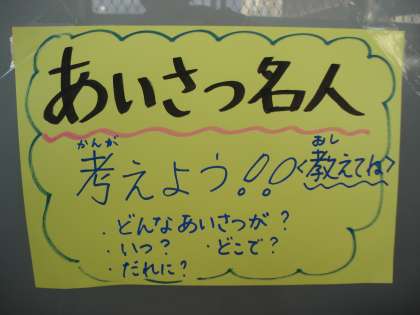 あいさつ名人
考えよう!!<教えてね>
かんが おし
・どんなあいさつが?
・いつ? ・どこで?
・だれに?